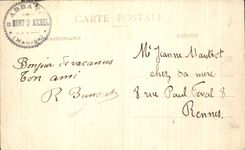 CARTE POSTALE
CORRESPONDANCE
ADRESSE
ABBAYE
DU MONT St MICHEL
(MANCHE)
Bonjour de vacances
Ton ami
R
Mlle Jeanne
chez sa mère
8 rue Paul Féval 8
Rennes